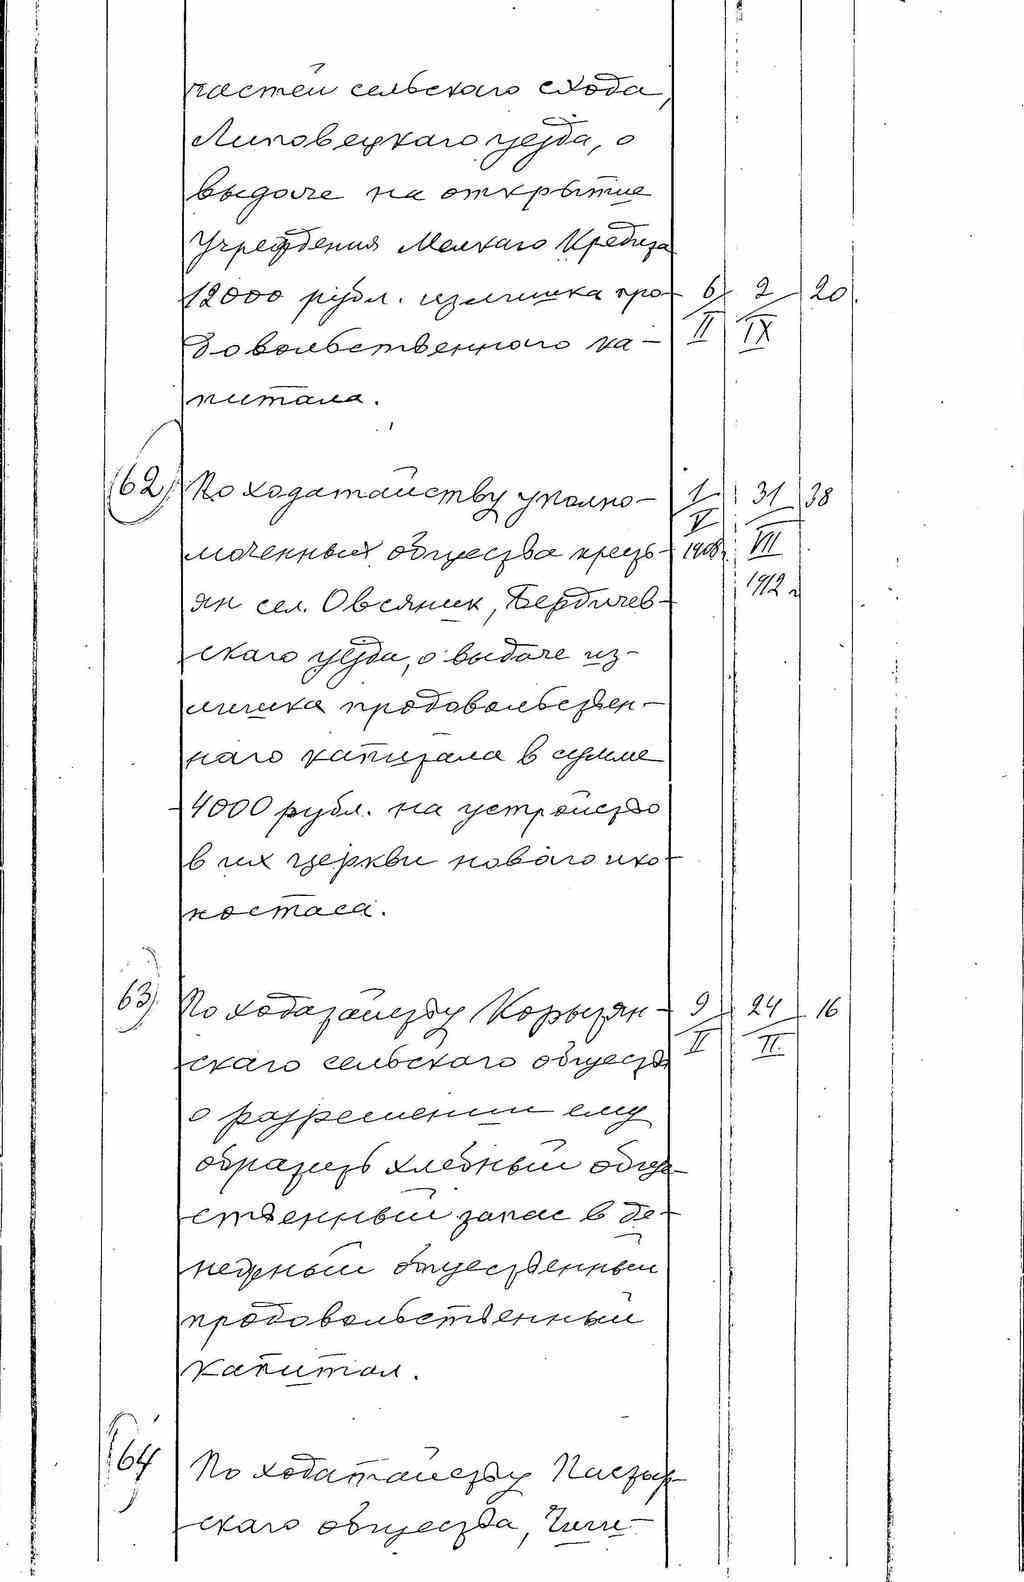 частей сельскаго схода,
Липовецкаго уезда, о
выдаче на открытие
Учреждения Мелкаго Кредита
12000 рубл. излишка про- 6/II 2/IX 20.
довольственного ка-
питала.
62) По ходатайству уполно- 1/V 31 38
моченных общества кресть- 1908г. VII
ян сел. Овсяник, Бердичев- 1912 г
скаго уезда, о выдаче из-
лишка продовольствен-
наго капитала в сумме
4000 рубл. на устройство
в их церкви новаго ико-
ностаса.
63) По ходатайству Корытян- 9 24 16
скаго сельскаго общества II II.
о разрешении ему
обратить хлебный обще-
ственный запас в де-
нежный общественный
продовольственный
капитал.
64 По ходатайству Пастыр-
скаго общества, Чиги-